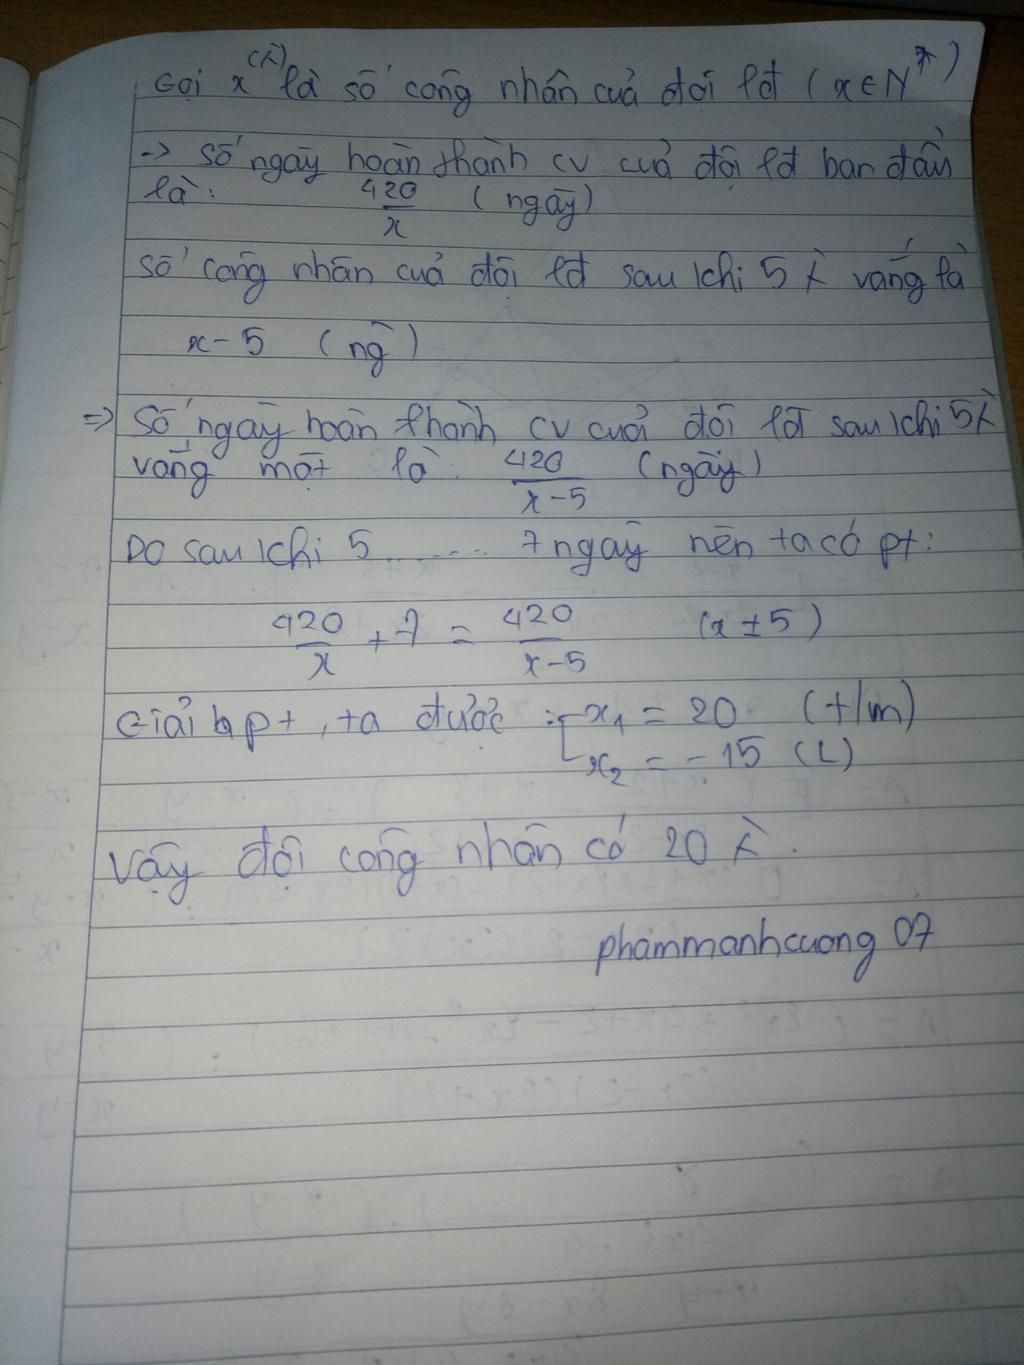 Gọi x (λ) là số công nhân của đội lđ (x ∈ N*)
-> số ngày hoàn thành cv của đội lđ ban đầu
là: 420/x (ngày)
số công nhân của đội lđ sau khi 5 λ̀ vắng là
x - 5 (ng)
=> Số ngày hoàn thành cv của đội lđ sau khi 5 λ̀
vắng mặt là: 420/(x-5) (ngày)
Do sau khi 5 ....... 7 ngày nên ta có pt:
420/x + 7 = 420/(x-5) (x ± 5)
Giải pt, ta được: [ x₁ = 20 (t/m)
x₂ = -15 (L)
Vậy đội công nhân có 20 λ̀.
phammanhcuong 07